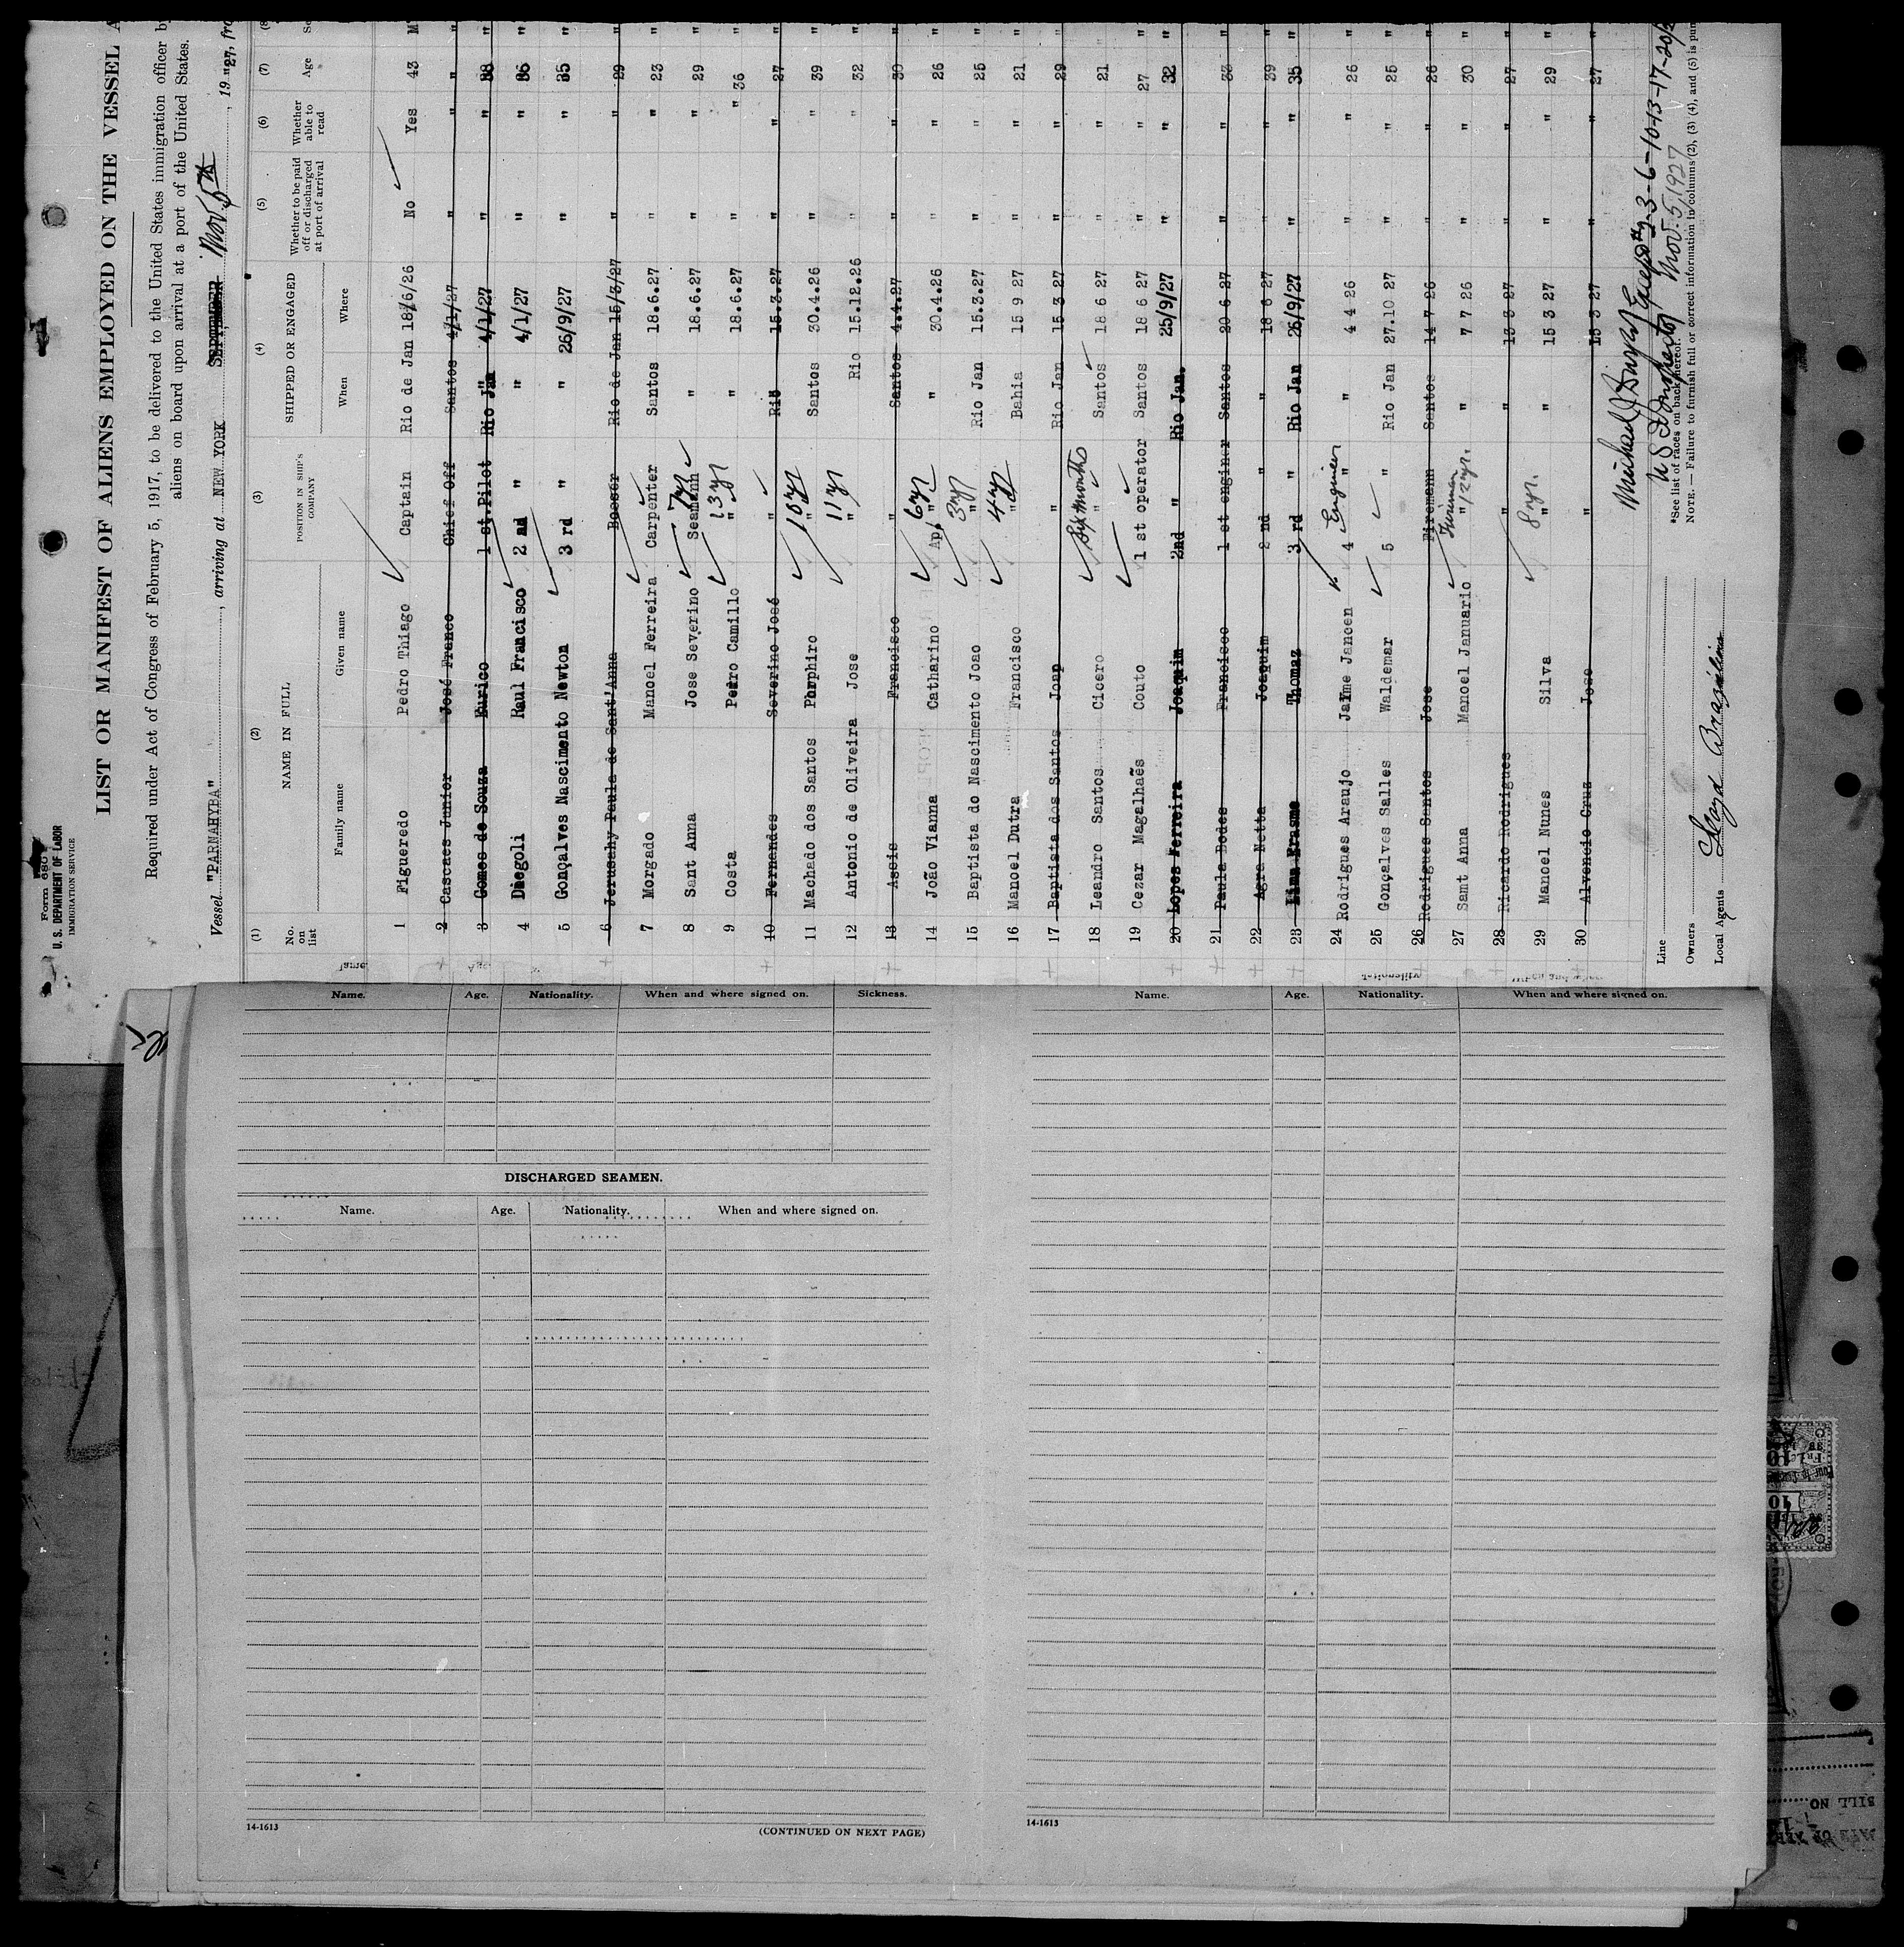 Form 680
U. S. DEPARTMENT OF LABOR
IMMIGRATION SERVICE
LIST OR MANIFEST OF ALIENS EMPLOYED ON THE VESSEL A
Required under Act of Congress of February 5, 1917, to be delivered to the United States immigration officer by
aliens on board upon arrival at a port of the United States.
Vessel "PARNAHYBA", arriving at NEW YORK SEPTEMBER Nov. 5th, 19 "27, fro
(1) (2) (3) (4) (5) (6) (7) (8
No. on list NAME IN FULL Family name Given name POSITION IN SHIP'S COMPANY SHIPPED OR ENGAGED When Where Whether to be paid off or discharged at port of arrival Whether able to read Age Se
1 Figueredo Pedro Thiago Captain Rio de Jan 18/6/26 No Yes 43 M
2 Cascaes Junior José Franco Chief Off Santos 4/1/27 " " " "
3 Gomes de Souza Eurico 1 st.Pilot Rio Jan 4/1/27 " " 38 "
4 Diegoli Raul Francisco 2 nd " " 4/1/27 " " 36 "
5 Gonçalves Nascimento Newton 3 rd " " 26/9/27 " " 35 "
6 Jerusahy Paula de Sant'Anna Boeser Rio de Jan 15/3/27 " " 29 "
7 Morgado Manoel Ferreira Carpenter Santos 18.6.27 " " 23 "
8 Sant Anna Jose Severino Seamann 7 yr " 18.6.27 " " 29 "
9 Costa Pedro Camillo " 13 yr " 18.6.27 " " 36 "
10 Fernandes Severino José " Rio 15.3.27 " " 27 "
11 Machado dos Santos Porphiro " 10 yr Santos 30.4.26 " " 39 "
12 Antonio de Oliveira Jose " 11 yr Rio 15.12.26 " " 32 "
13 Assis Francisco " Santos 4.4.27 " " 30 "
14 João Vianna Catharino Ap. " 6 yr " 30.4.26 " " 26 "
15 Baptista do Nascimento Joao " 3 yr Rio Jan 15.3.27 " " 25 "
16 Manoel Dutra Francisco " 4 yr Bahia 15 9 27 " " 21 "
17 Baptista dos Santos Joap " Rio Jan 15 3 27 " " 29 "
18 Leandro Santos Cicero " Six months Santos 18 6 27 " " 21 "
19 Cezar Magalhaẽs Couto 1 st operator Santos 18 6 27 " " 27 "
20 Lopes Ferreira Joaquim 2nd " Rio Jan. 25/9/27 " " 32 "
21 Paula Dodes Francisco 1 st enginer Santos 20 6 27 " " 33 "
22 Agra Netta Joaquim 2 nd " " 18 6 27 " " 39 "
23 Lima Erasmo Thomaz 3 rd " Rio Jan 26/9/27 " " 35 "
24 Rodrigues Araujo Jayme Jancen 4 " Engineer " 4 4 26 " " 26 "
25 Gonçalves Salles Waldemar 5 " Rio Jan 27.10 27 " " 25 "
26 Rodrigues Santos Jose Firemann Santos 14 7 26 " " 26 "
27 Sant Anna Manoel Januario Fireman " 12 yr. " 7 7 26 " " 30 "
28 Ricardo Rodrigues " " 13 3 27 " " 27 "
29 Manoel Nunes Silva " 8 yr. " 15 3 27 " " 29 "
30 Alvencio Cruz Jose " 15 3 27 " " 27 "
Line
Owners
Local Agents Lloyd Brasileiro
Except # 2-3-6-10-13-17-20/2
U S Inspector Nov. 5, 1927
*See list of races on back hereof.
NOTE. — Failure to furnish full or correct information in columns (2), (3) (4), and (5) is pun
Name. Age. Nationality. When and where signed on. Sickness.
DISCHARGED SEAMEN.
Name. Age. Nationality. When and where signed on.
14-1613
(CONTINUED ON NEXT PAGE)
Name. Age. Nationality. When and where signed on.
14-1613
BILL NO